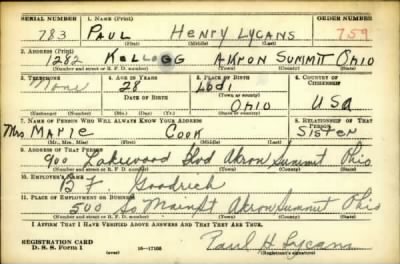 SERIAL NUMBER 1. NAME (Print) ORDER NUMBER
783 PAUL HENRY LYCANS 759
(First) (Middle) (Last)
2. ADDRESS (Print)
1282 KELLOGG AKRON SUMMIT OHIO
(Number and street or R. F. D. number) (Town) (County) (State)
3. TELEPHONE 4. AGE IN YEARS 5. PLACE OF BIRTH 6. COUNTRY OF CITIZENSHIP
None 28 Lodi
DATE OF BIRTH (Town or county)
OHIO USA
7. NAME OF PERSON WHO WILL ALWAYS KNOW YOUR ADDRESS 8. RELATIONSHIP OF THAT PERSON
Mrs MARIE COOK SISTER
(Mr., Mrs., Miss) (First) (Middle) (Last)
9. ADDRESS OF THAT PERSON
900 Lakewood Blvd Akron Summit Ohio
(Number and street or R. F. D. number) (Town) (County) (State)
10. EMPLOYER'S NAME
B F. Goodrich
11. PLACE OF EMPLOYMENT OR BUSINESS
500 So Main St Akron Summit Ohio
(Number and street or R. F. D. number) (Town) (County) (State)
I AFFIRM THAT I HAVE VERIFIED ABOVE ANSWERS AND THAT THEY ARE TRUE.
REGISTRATION CARD
D. S. S. Form 1 Paul H. Lycans
(Registrant's signature)